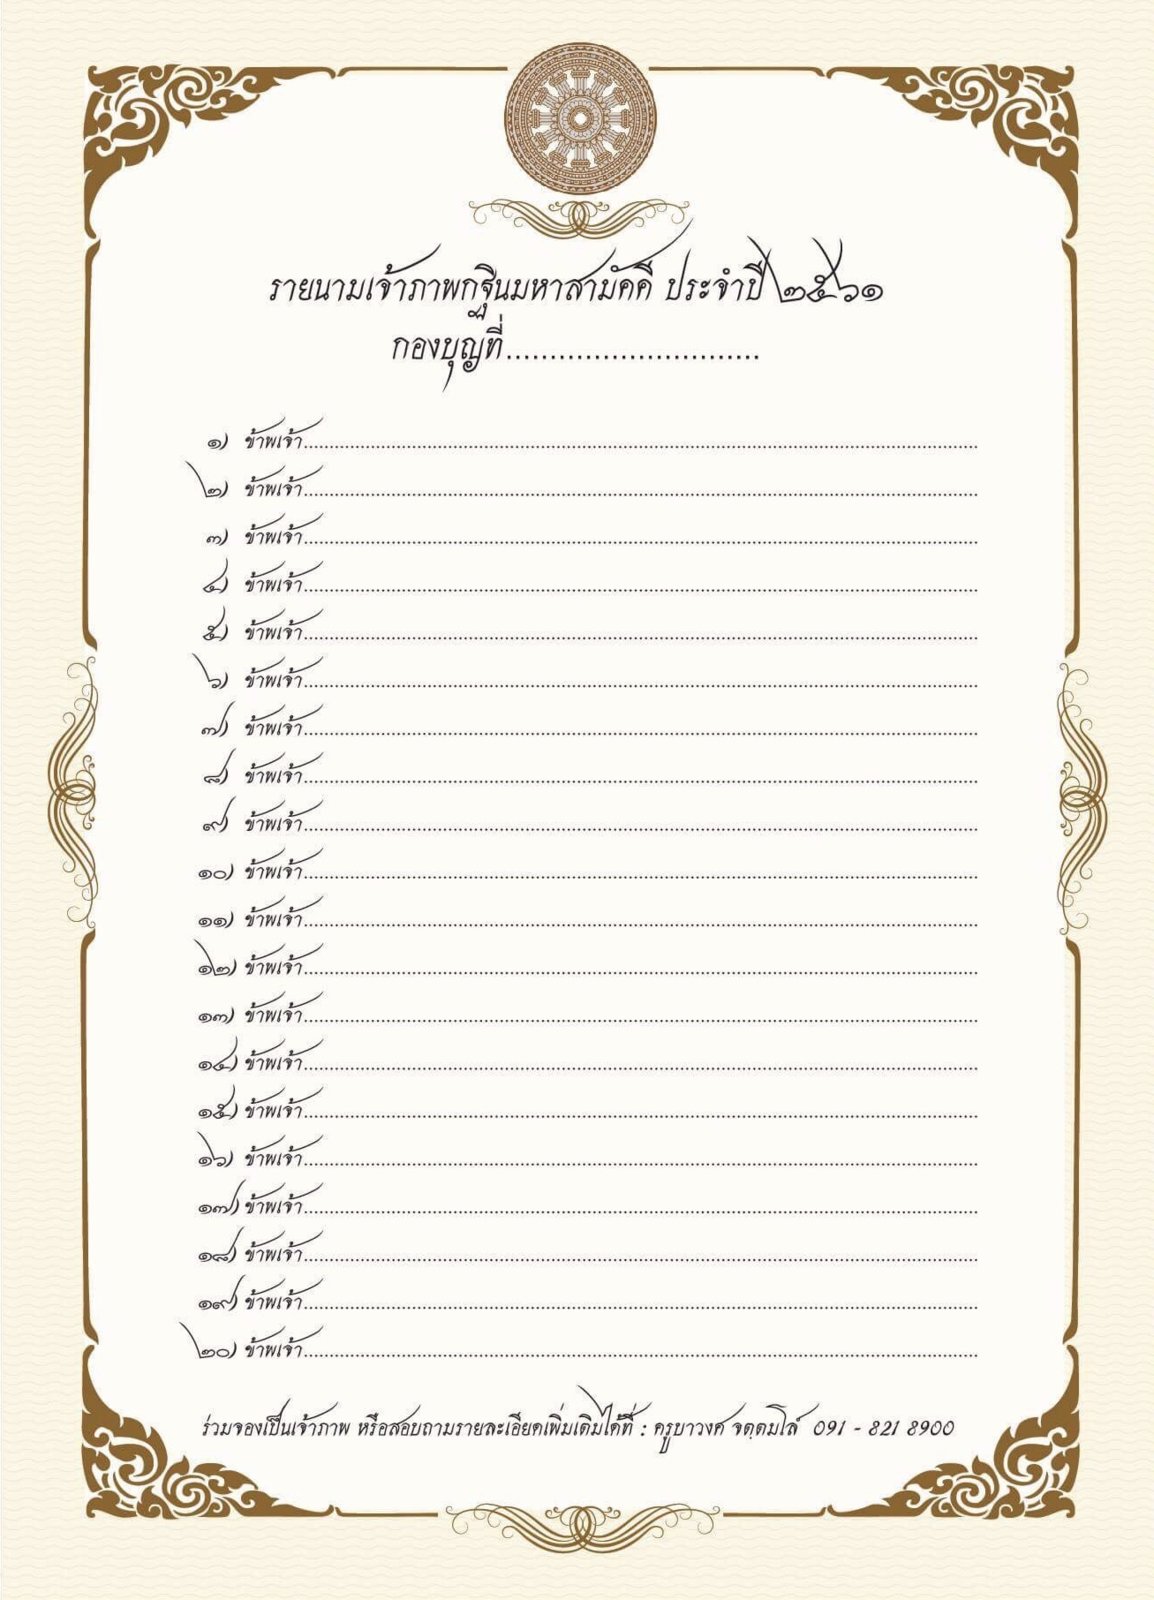 รายนามเจ้าภาพกฐินมหาสามัคคี ประจำปี ๒๕๖๑
กองบุญที่.............................
๑) ข้าพเจ้า....................
๒) ข้าพเจ้า....................
๓) ข้าพเจ้า....................
๔) ข้าพเจ้า....................
๕) ข้าพเจ้า....................
๖) ข้าพเจ้า....................
๗) ข้าพเจ้า....................
๘) ข้าพเจ้า....................
๙) ข้าพเจ้า....................
๑๐) ข้าพเจ้า....................
๑๑) ข้าพเจ้า....................
๑๒) ข้าพเจ้า....................
๑๓) ข้าพเจ้า....................
๑๔) ข้าพเจ้า....................
๑๕) ข้าพเจ้า....................
๑๖) ข้าพเจ้า....................
๑๗) ข้าพเจ้า....................
๑๘) ข้าพเจ้า....................
๑๙) ข้าพเจ้า....................
๒๐) ข้าพเจ้า....................
ร่วมจองเป็นเจ้าภาพ หรือสอบถามรายละเอียดเพิ่มเติมได้ที่ : ครูบาวงศ์ จตฺตมโล 091 - 821 8900